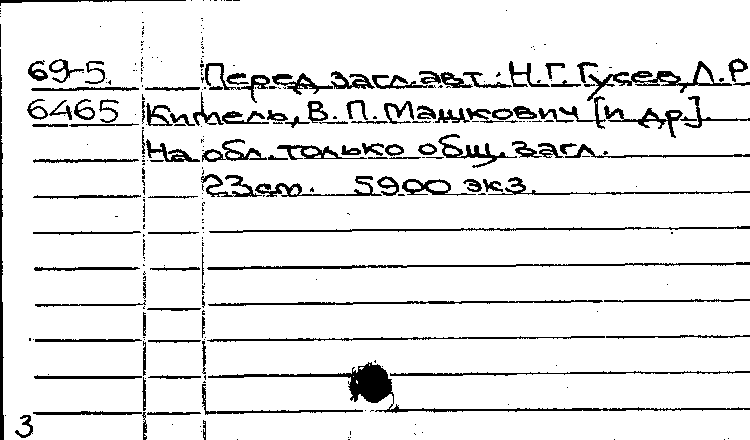 69-5. Перед загл. авт.: Н.Г. Гусев, Л.Р.
6465 Кимель, В.П. Машкович [и др.].
На обл. только общ. загл.
23 см. 5900 экз.
3